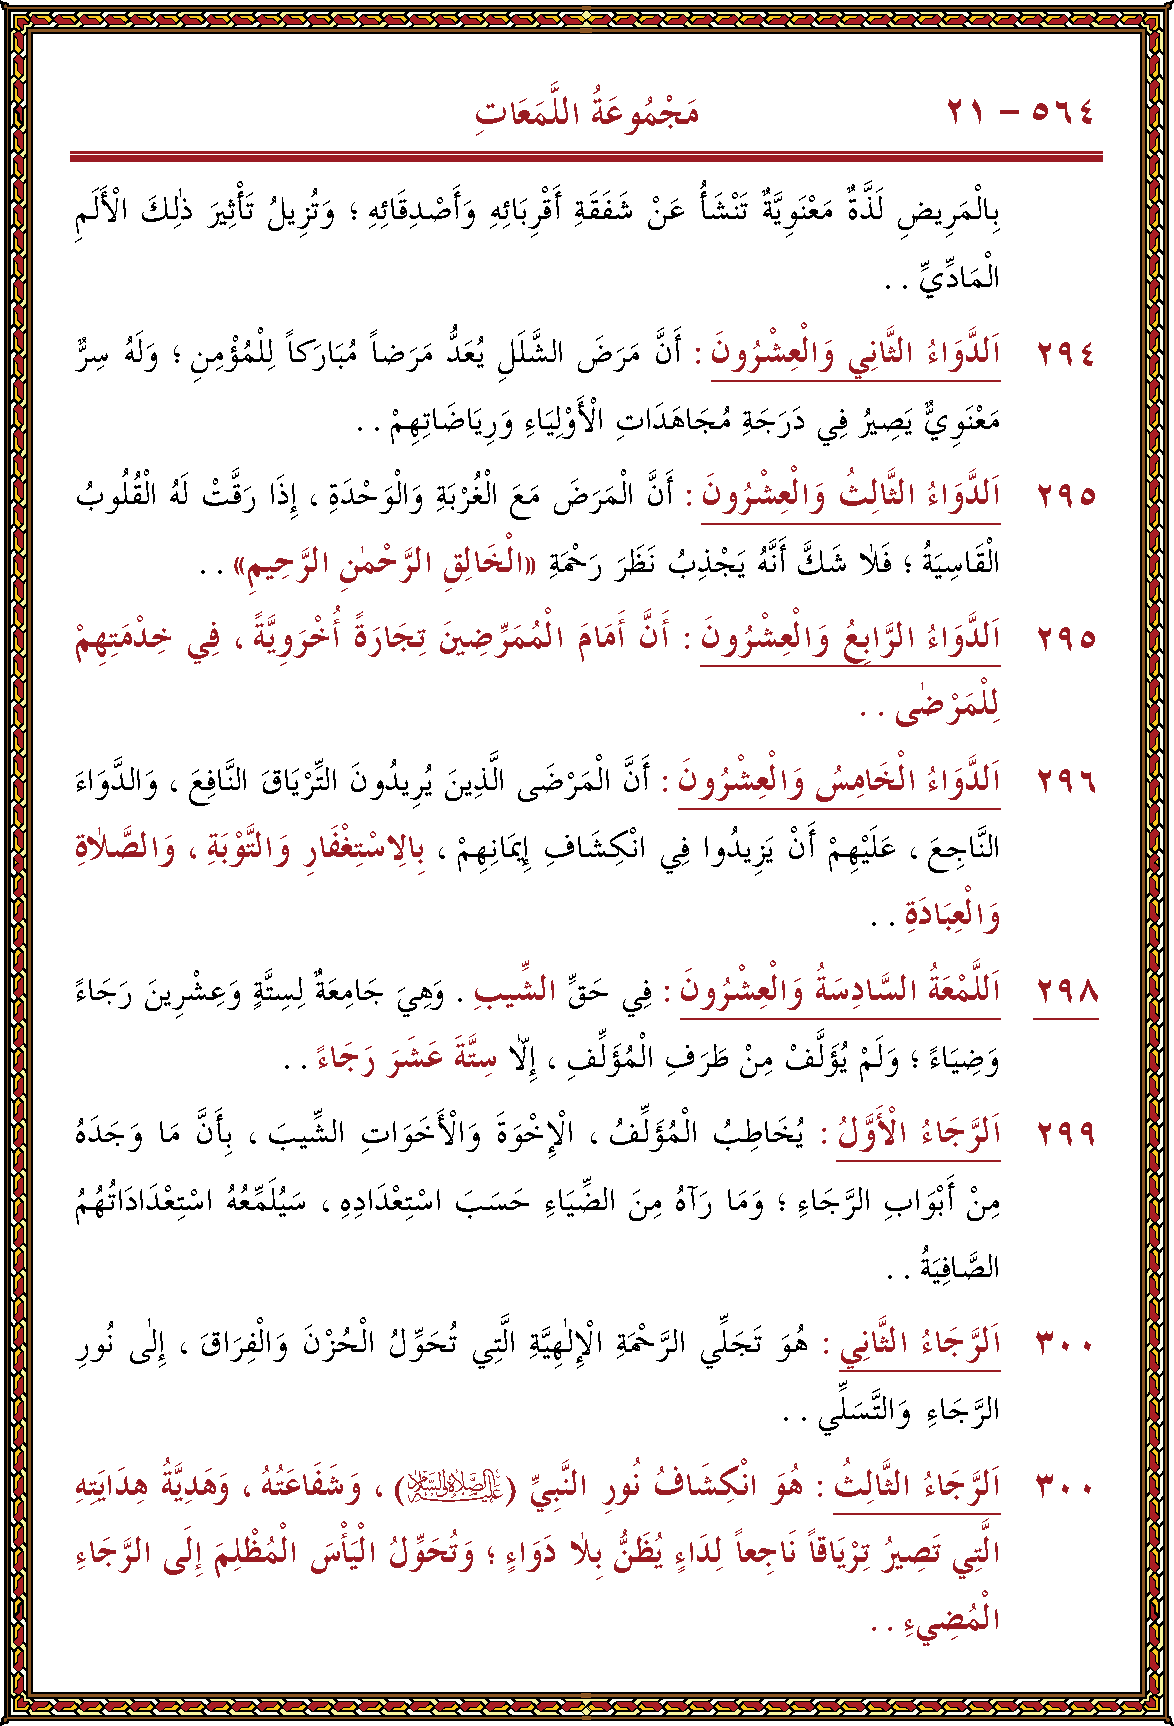 ٥٦٤ – ٢١ مَجْمُوعَةُ اللَّمَعَاتِ
بِالْمَرِيضِ لَذَّةٌ مَعْنَوِيَّةٌ تَنْشَأُ عَنْ شَفَقَةِ أَقْرِبَائِهِ وَأَصْدِقَائِهِ ؛ وَتُزِيلُ تَأْثِيرَ ذٰلِكَ الْأَلَمِ
الْمَادِّيِّ . .
٢٩٤ اَلدَّوَاءُ الثَّانِي وَالْعِشْرُونَ : أَنَّ مَرَضَ الشَّلَلِ يُعَدُّ مَرَضاً مُبَارَكاً لِلْمُؤْمِنِ ؛ وَلَهُ سِرٌّ
مَعْنَوِيٌّ يَصِيرُ فِي دَرَجَةِ مُجَاهَدَاتِ الْأَوْلِيَاءِ وَرِيَاضَاتِهِمْ . .
٢٩٥ اَلدَّوَاءُ الثَّالِثُ وَالْعِشْرُونَ : أَنَّ الْمَرَضَ مَعَ الْغُرْبَةِ وَالْوَحْدَةِ ، إِذَا رَقَّتْ لَهُ الْقُلُوبُ
الْقَاسِيَةُ ؛ فَلَا شَكَّ أَنَّهُ يَجْذِبُ نَظَرَ رَحْمَةِ «الْخَالِقِ الرَّحْمٰنِ الرَّحِيمِ» . .
٢٩٥ اَلدَّوَاءُ الرَّابِعُ وَالْعِشْرُونَ : أَنَّ أَمَامَ الْمُمَرِّضِينَ تِجَارَةً أُخْرَوِيَّةً ، فِي خِدْمَتِهِمْ
لِلْمَرْضٰى . .
٢٩٦ اَلدَّوَاءُ الْخَامِسُ وَالْعِشْرُونَ : أَنَّ الْمَرْضَى الَّذِينَ يُرِيدُونَ التِّرْيَاقَ النَّافِعَ ، وَالدَّوَاءَ
النَّاجِعَ ، عَلَيْهِمْ أَنْ يَزِيدُوا فِي انْكِشَافِ إِيمَانِهِمْ ، بِالِاسْتِغْفَارِ وَالتَّوْبَةِ ، وَالصَّلَاةِ
وَالْعِبَادَةِ . .
٢٩٨ اَللَّمْعَةُ السَّادِسَةُ وَالْعِشْرُونَ : فِي حَقِّ الشِّيبِ . وَهِيَ جَامِعَةٌ لِسِتَّةٍ وَعِشْرِينَ رَجَاءً
وَضِيَاءً ؛ وَلَمْ يُؤَلَّفْ مِنْ طَرَفِ الْمُؤَلِّفِ ، إِلَّا سِتَّةَ عَشَرَ رَجَاءً . .
٢٩٩ اَلرَّجَاءُ الْأَوَّلُ : يُخَاطِبُ الْمُؤَلِّفُ ، الْإِخْوَةَ وَالْأَخَوَاتِ الشِّيبَ ، بِأَنَّ مَا وَجَدَهُ
مِنْ أَبْوَابِ الرَّجَاءِ ؛ وَمَا رَآهُ مِنَ الضِّيَاءِ حَسَبَ اسْتِعْدَادِهِ ، سَيُلَمِّعُهُ اسْتِعْدَادَاتُهُمُ
الصَّافِيَةُ . .
٣٠٠ اَلرَّجَاءُ الثَّانِي : هُوَ تَجَلِّي الرَّحْمَةِ الْإِلٰهِيَّةِ الَّتِي تُحَوِّلُ الْحُزْنَ وَالْفِرَاقَ ، إِلٰى نُورِ
الرَّجَاءِ وَالتَّسَلِّي . .
٣٠٠ اَلرَّجَاءُ الثَّالِثُ : هُوَ انْكِشَافُ نُورِ النَّبِيِّ (عَلَيْهِ الصَّلَاةُ وَالسَّلَامُ) ، وَشَفَاعَتُهُ ، وَهَدِيَّةُ هِدَايَتِهِ
الَّتِي تَصِيرُ تِرْيَاقاً نَاجِعاً لِدَاءٍ يُظَنُّ بِلَا دَوَاءٍ ؛ وَتُحَوِّلُ الْيَأْسَ الْمُظْلِمَ إِلَى الرَّجَاءِ
الْمُضِيءِ . .